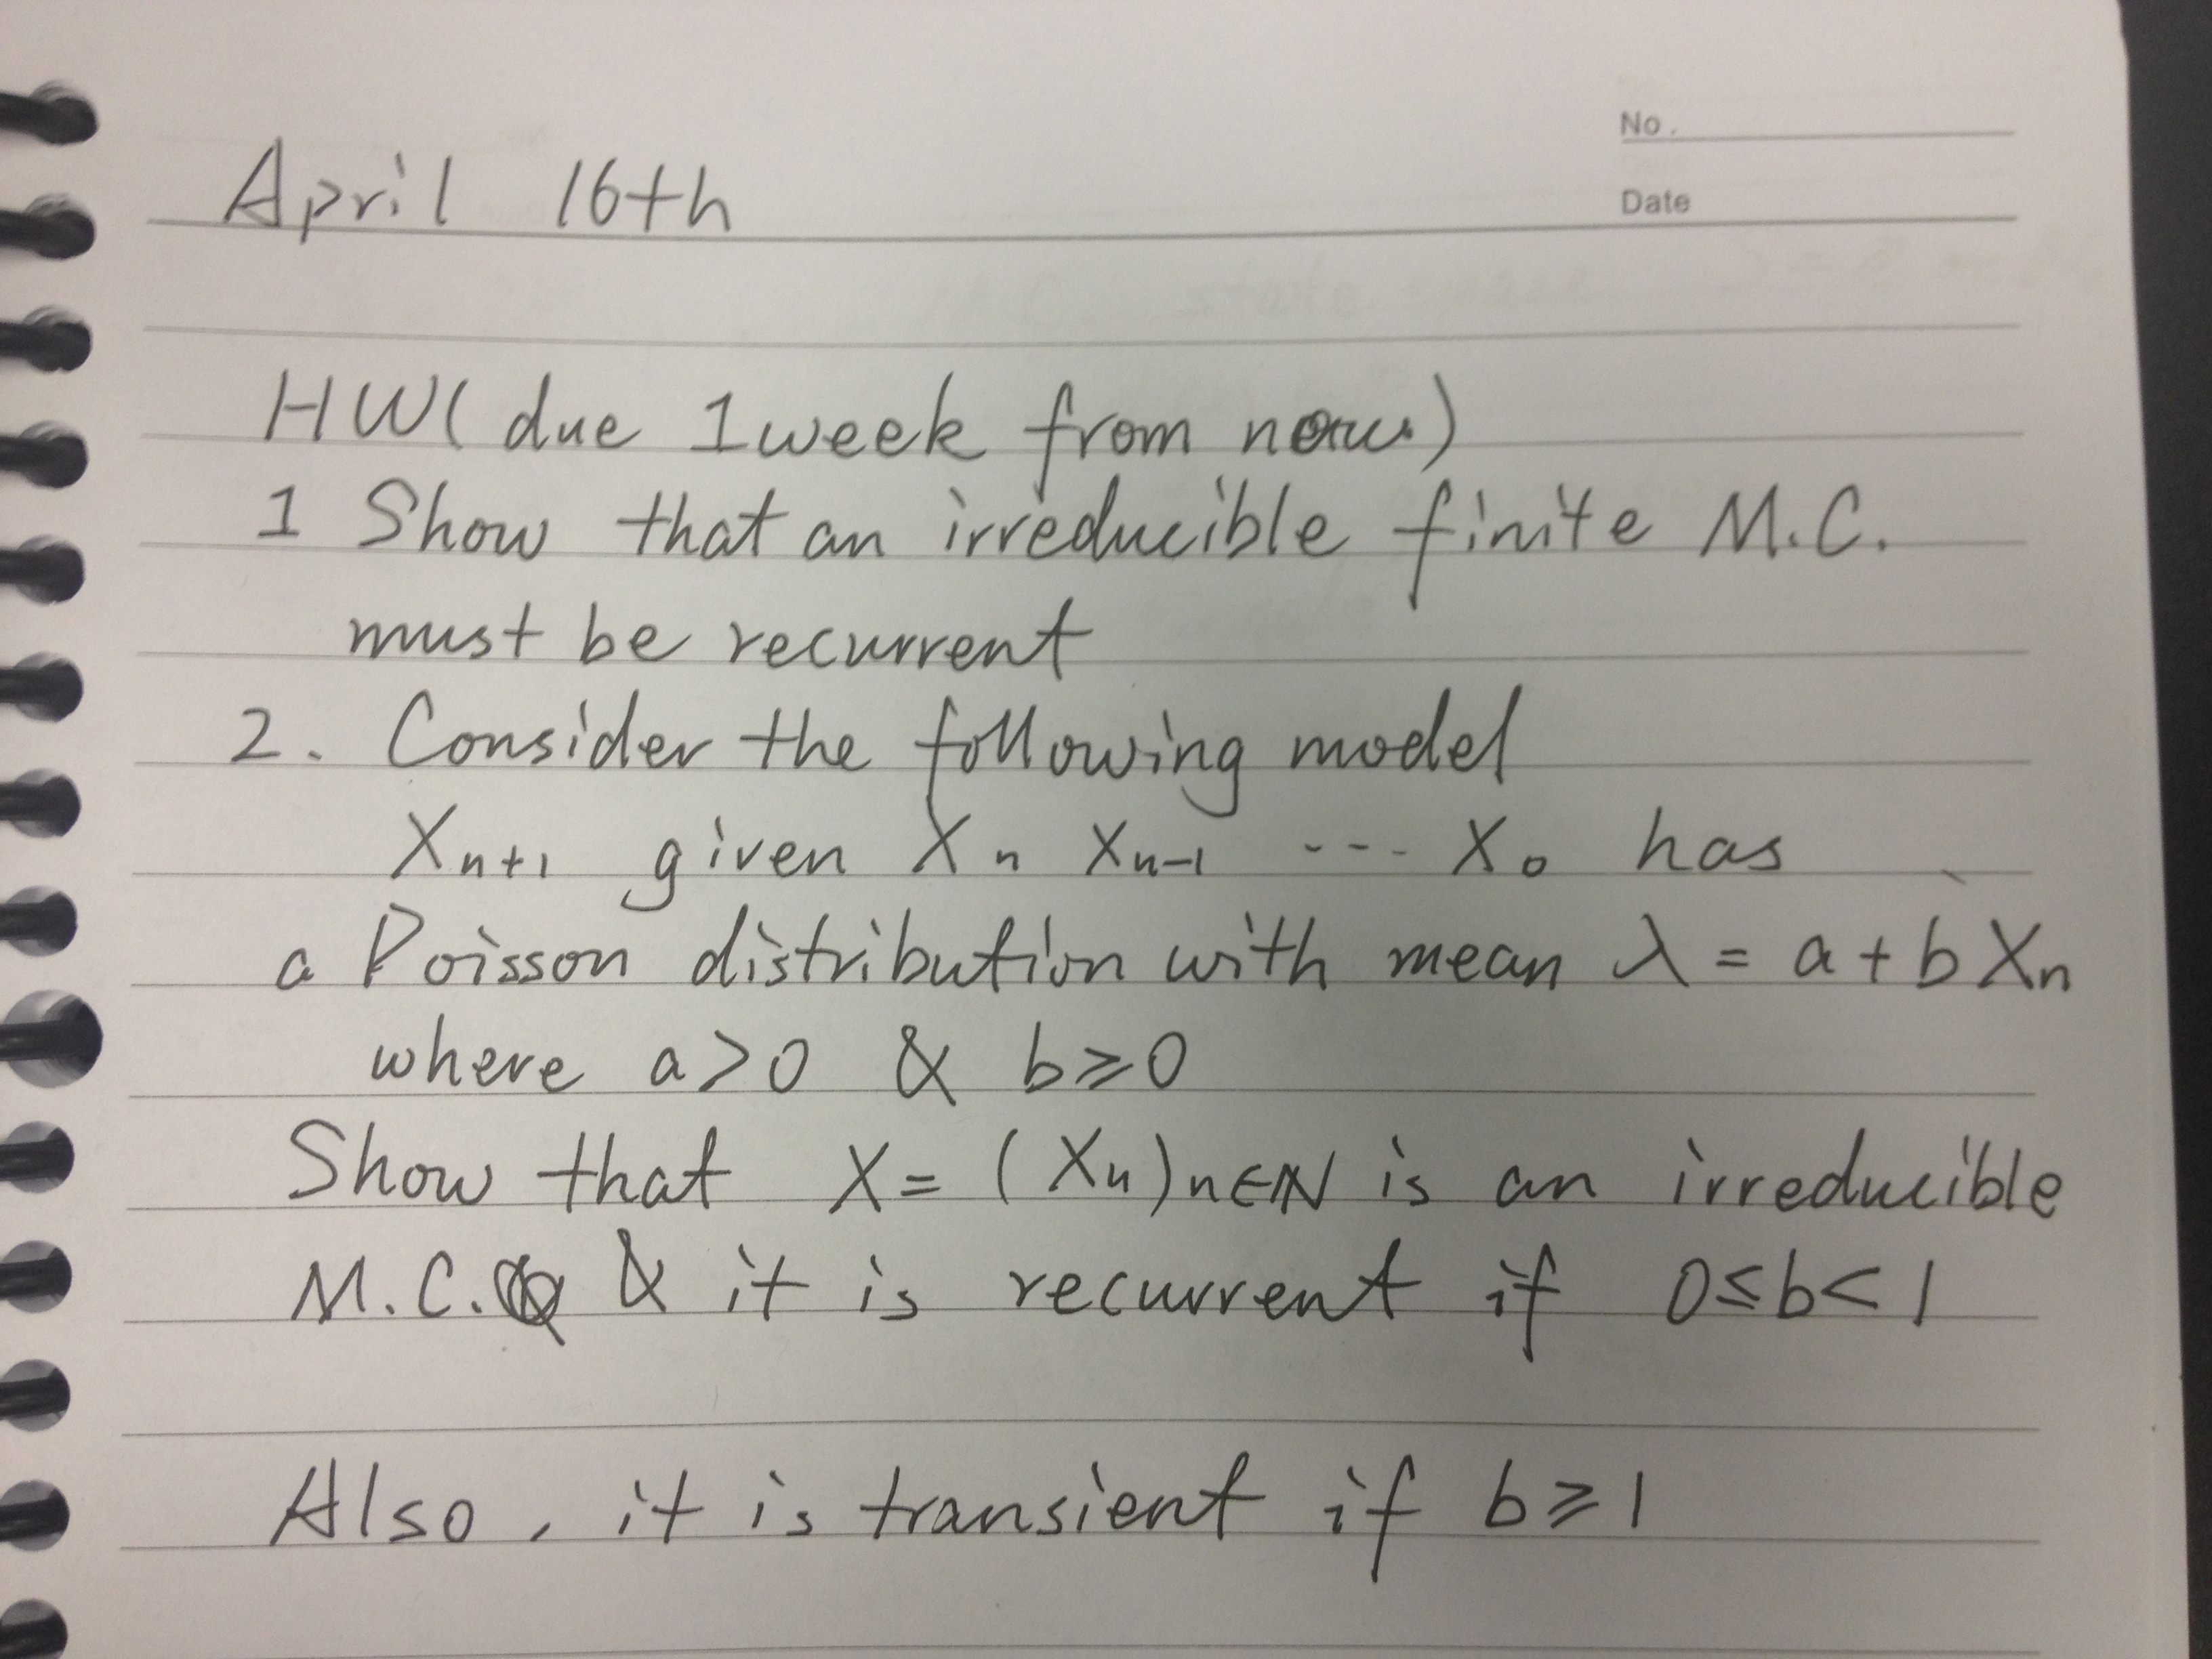 No.
Date
April 16th
HW( due 1week from now)
1 Show that an irreducible finite M.C.
must be recurrent
2. Consider the following model
Xn+1 given Xn Xn-1 --- X0 has
a Poisson distribution with mean λ = a + b Xn
where a>0 & b≥0
Show that X = (Xn)n∈ℕ is an irreducible
M.C. & it is recurrent if 0≤b<1
Also, it is transient if b≥1